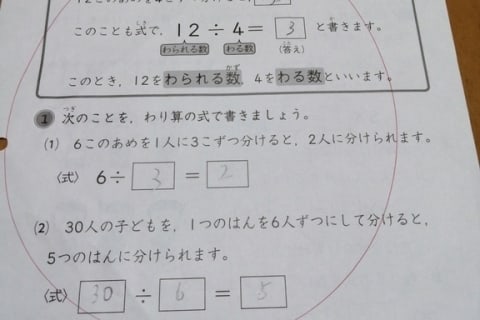 このことも式で、12÷4＝3 と書きます。
しき か
わられる数 わる数 (答え)
このとき、12をわられる数、4をわる数といいます。
かず
つぎ
1 次のことを、わり算の式で書きましょう。
(1) 6このあめを1人に3こずつ分けると、2人に分けられます。
(式) 6÷3＝2
(2) 30人の子どもを、1つのはんを6人ずつにして分けると、
5つのはんに分けられます。
(式) 30÷6＝5